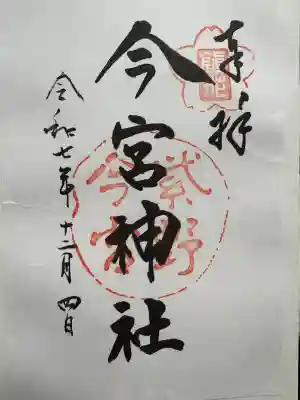 奉拝
今宮神社
令和七年十二月四日
紫野
今宮